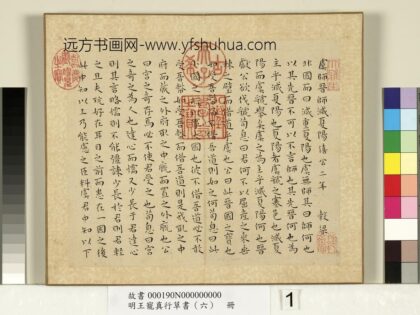 远方书画网-www.yfshuhua.com
虞師晉師滅夏陽僖公二年 穀梁
非國而曰滅重夏陽也虞無師其曰師何也
以其先晉不可以不言師也其先晉何也為
主乎滅夏陽也夏陽者虞虢之塞邑也滅夏
陽而虞虢舉矣虞之為主乎滅夏陽何也晉
獻公欲伐虢荀息曰君何不以屈產之乘垂
棘之璧而借道乎虞也公曰此晉國之寶也
如受吾幣而不借吾道則如之何荀息曰此
小國之所以事大國也彼不借吾道必不敢
受吾幣如受吾幣而借吾道則是我取之中
府而藏之外府取之中廄而置之外廄也公
曰宮之奇存焉必不使君受之也荀息曰宮
之奇之為人也達心而懦又少長于君達心
則其言略懦則不能強諫少長於君則君輕
之且夫玩好在耳目之前而患在一國之後
此中知以上乃能慮之臣料虞君中知以下
故書 000190N000000000
明王寵真行草書（六） 冊
1